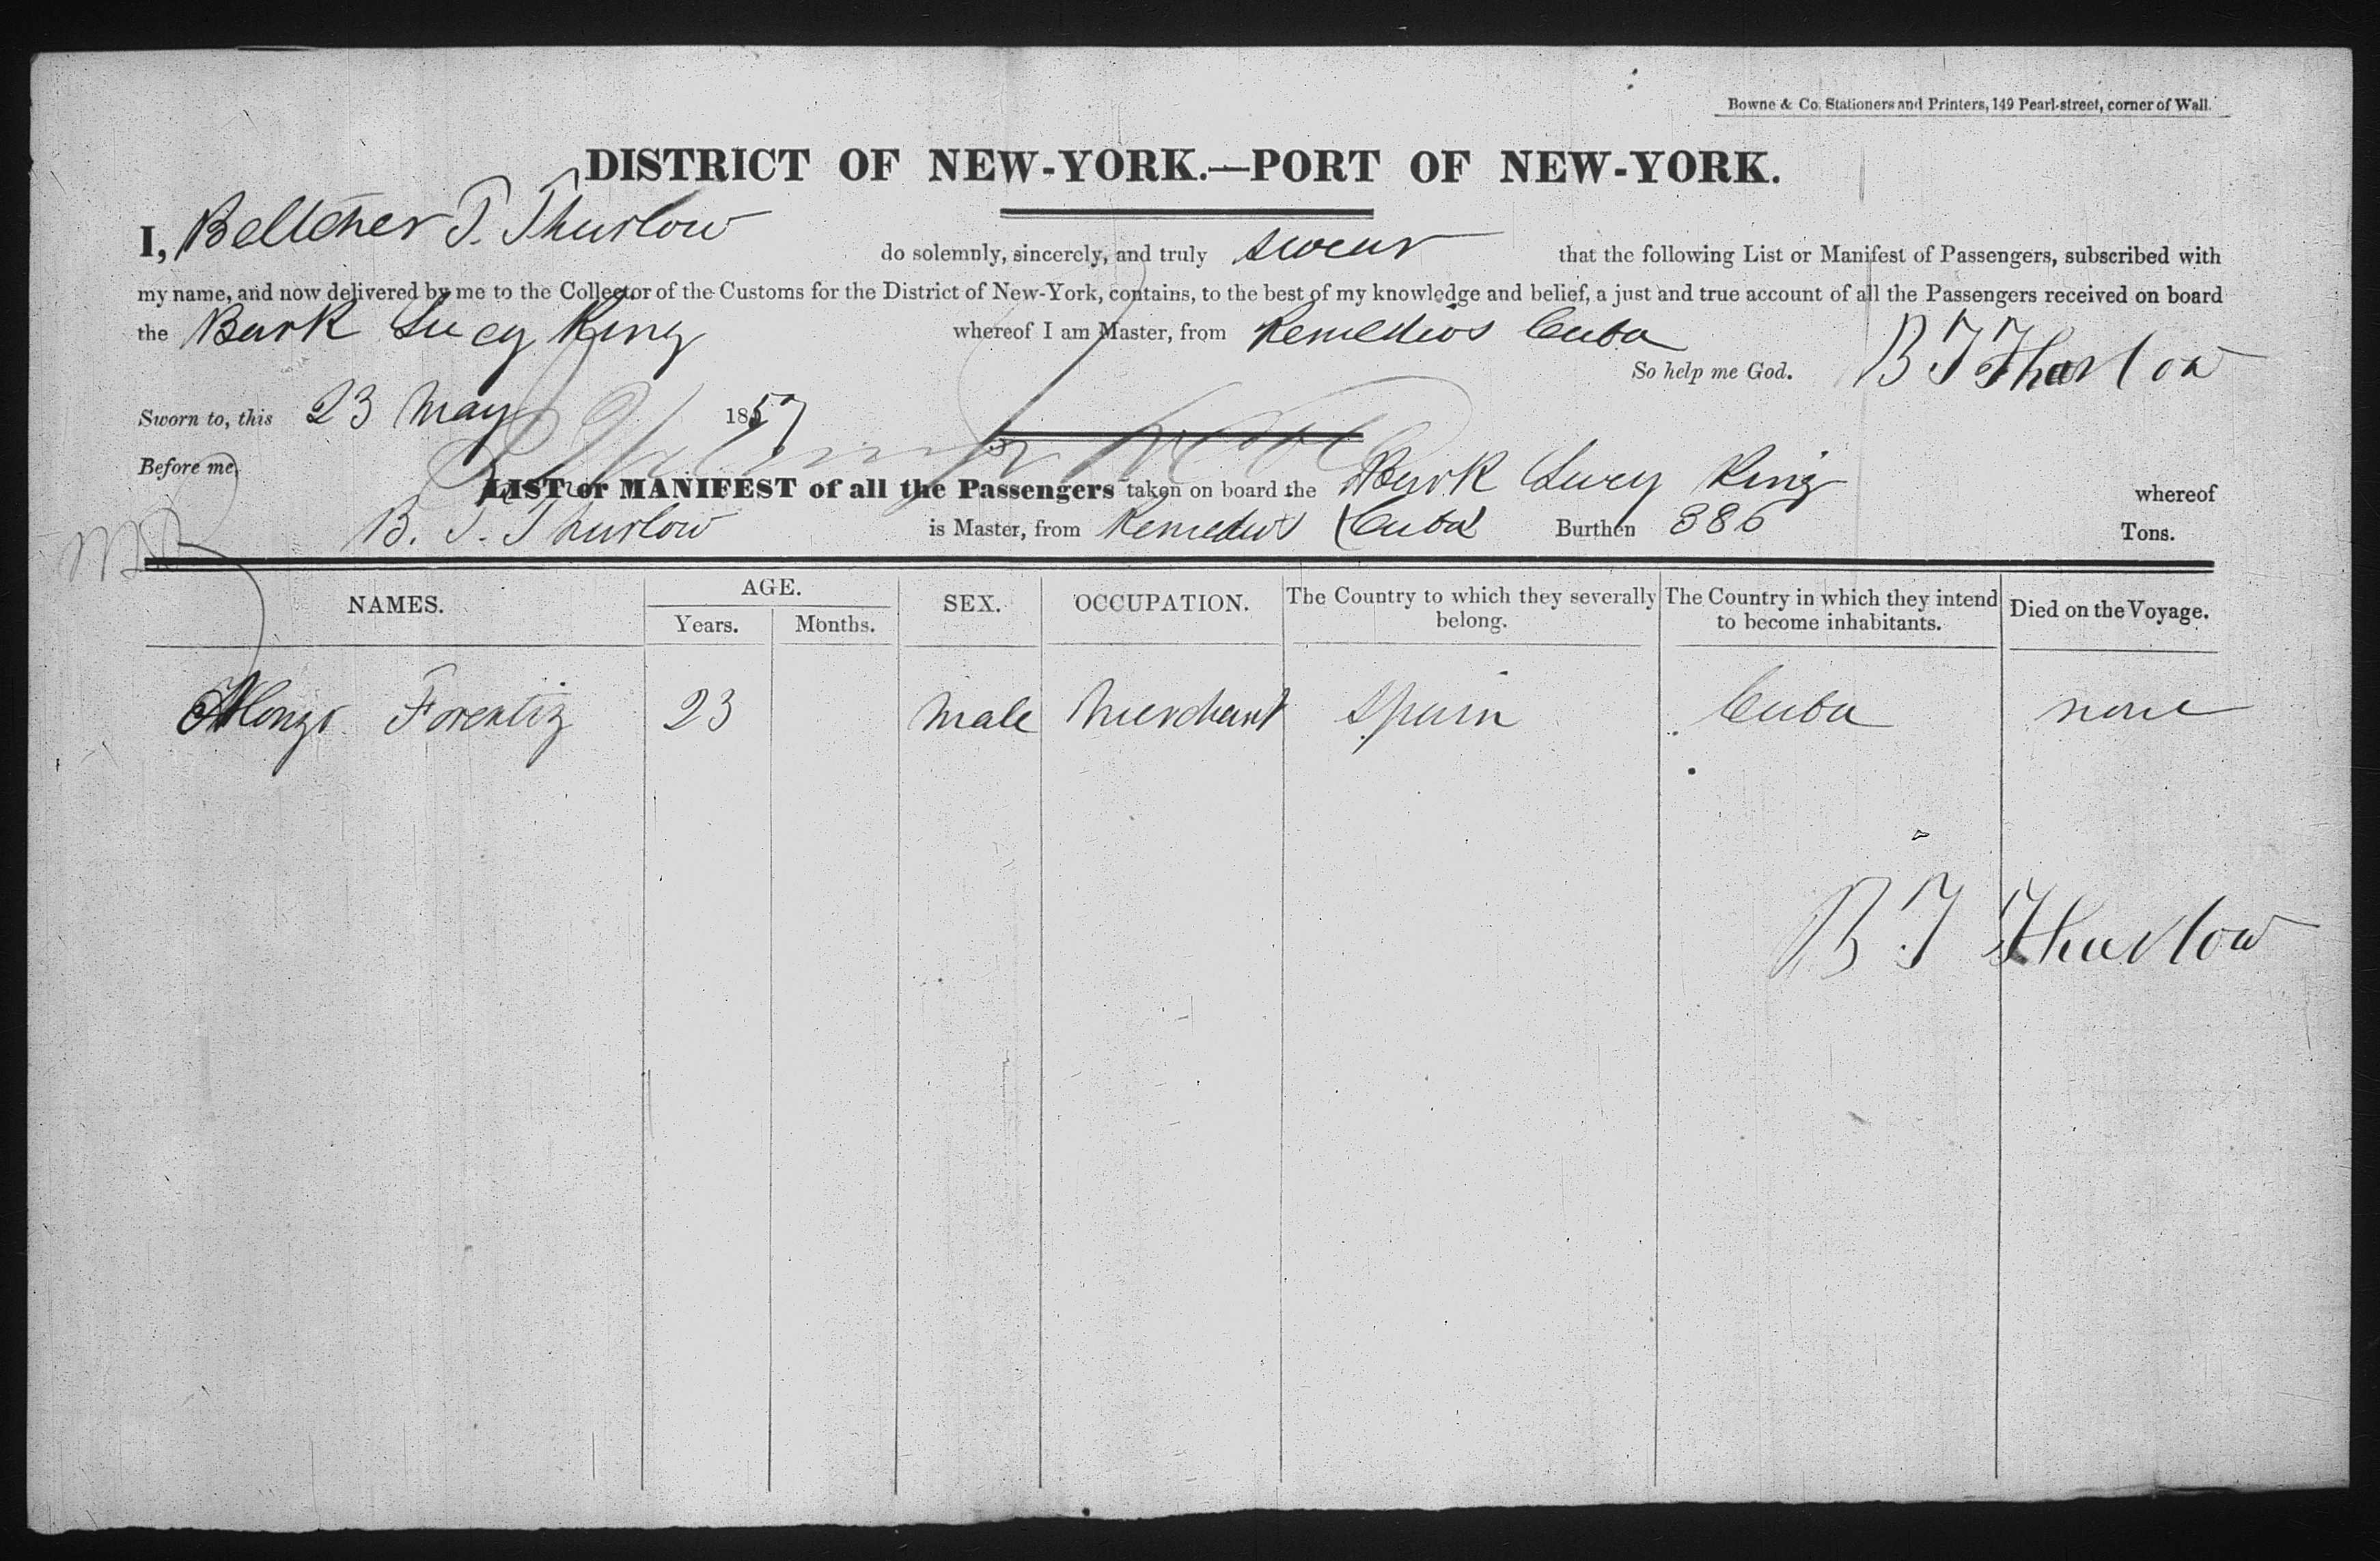 Bowne & Co. Stationers and Printers, 149 Pearl-street, corner of Wall.
DISTRICT OF NEW-YORK.—PORT OF NEW-YORK.
I, Beltcher T. Thurlow do solemnly, sincerely, and truly swear that the following List or Manifest of Passengers, subscribed with
my name, and now delivered by me to the Collector of the Customs for the District of New-York, contains, to the best of my knowledge and belief, a just and true account of all the Passengers received on board
the Bark Lucy King whereof I am Master, from Remedios Cuba
So help me God. B T Thurlow
Sworn to, this 23 May 1857
Before me,
LIST or MANIFEST of all the Passengers taken on board the Bark Lucy King whereof
B. T. Thurlow is Master, from Remedios Cuba Burthen 386 Tons.
NAMES. AGE. Years. Months. SEX. OCCUPATION. The Country to which they severally belong. The Country in which they intend to become inhabitants. Died on the Voyage.
Alonzo Forentiz 23 Male Merchant Spain Cuba none
B T Thurlow